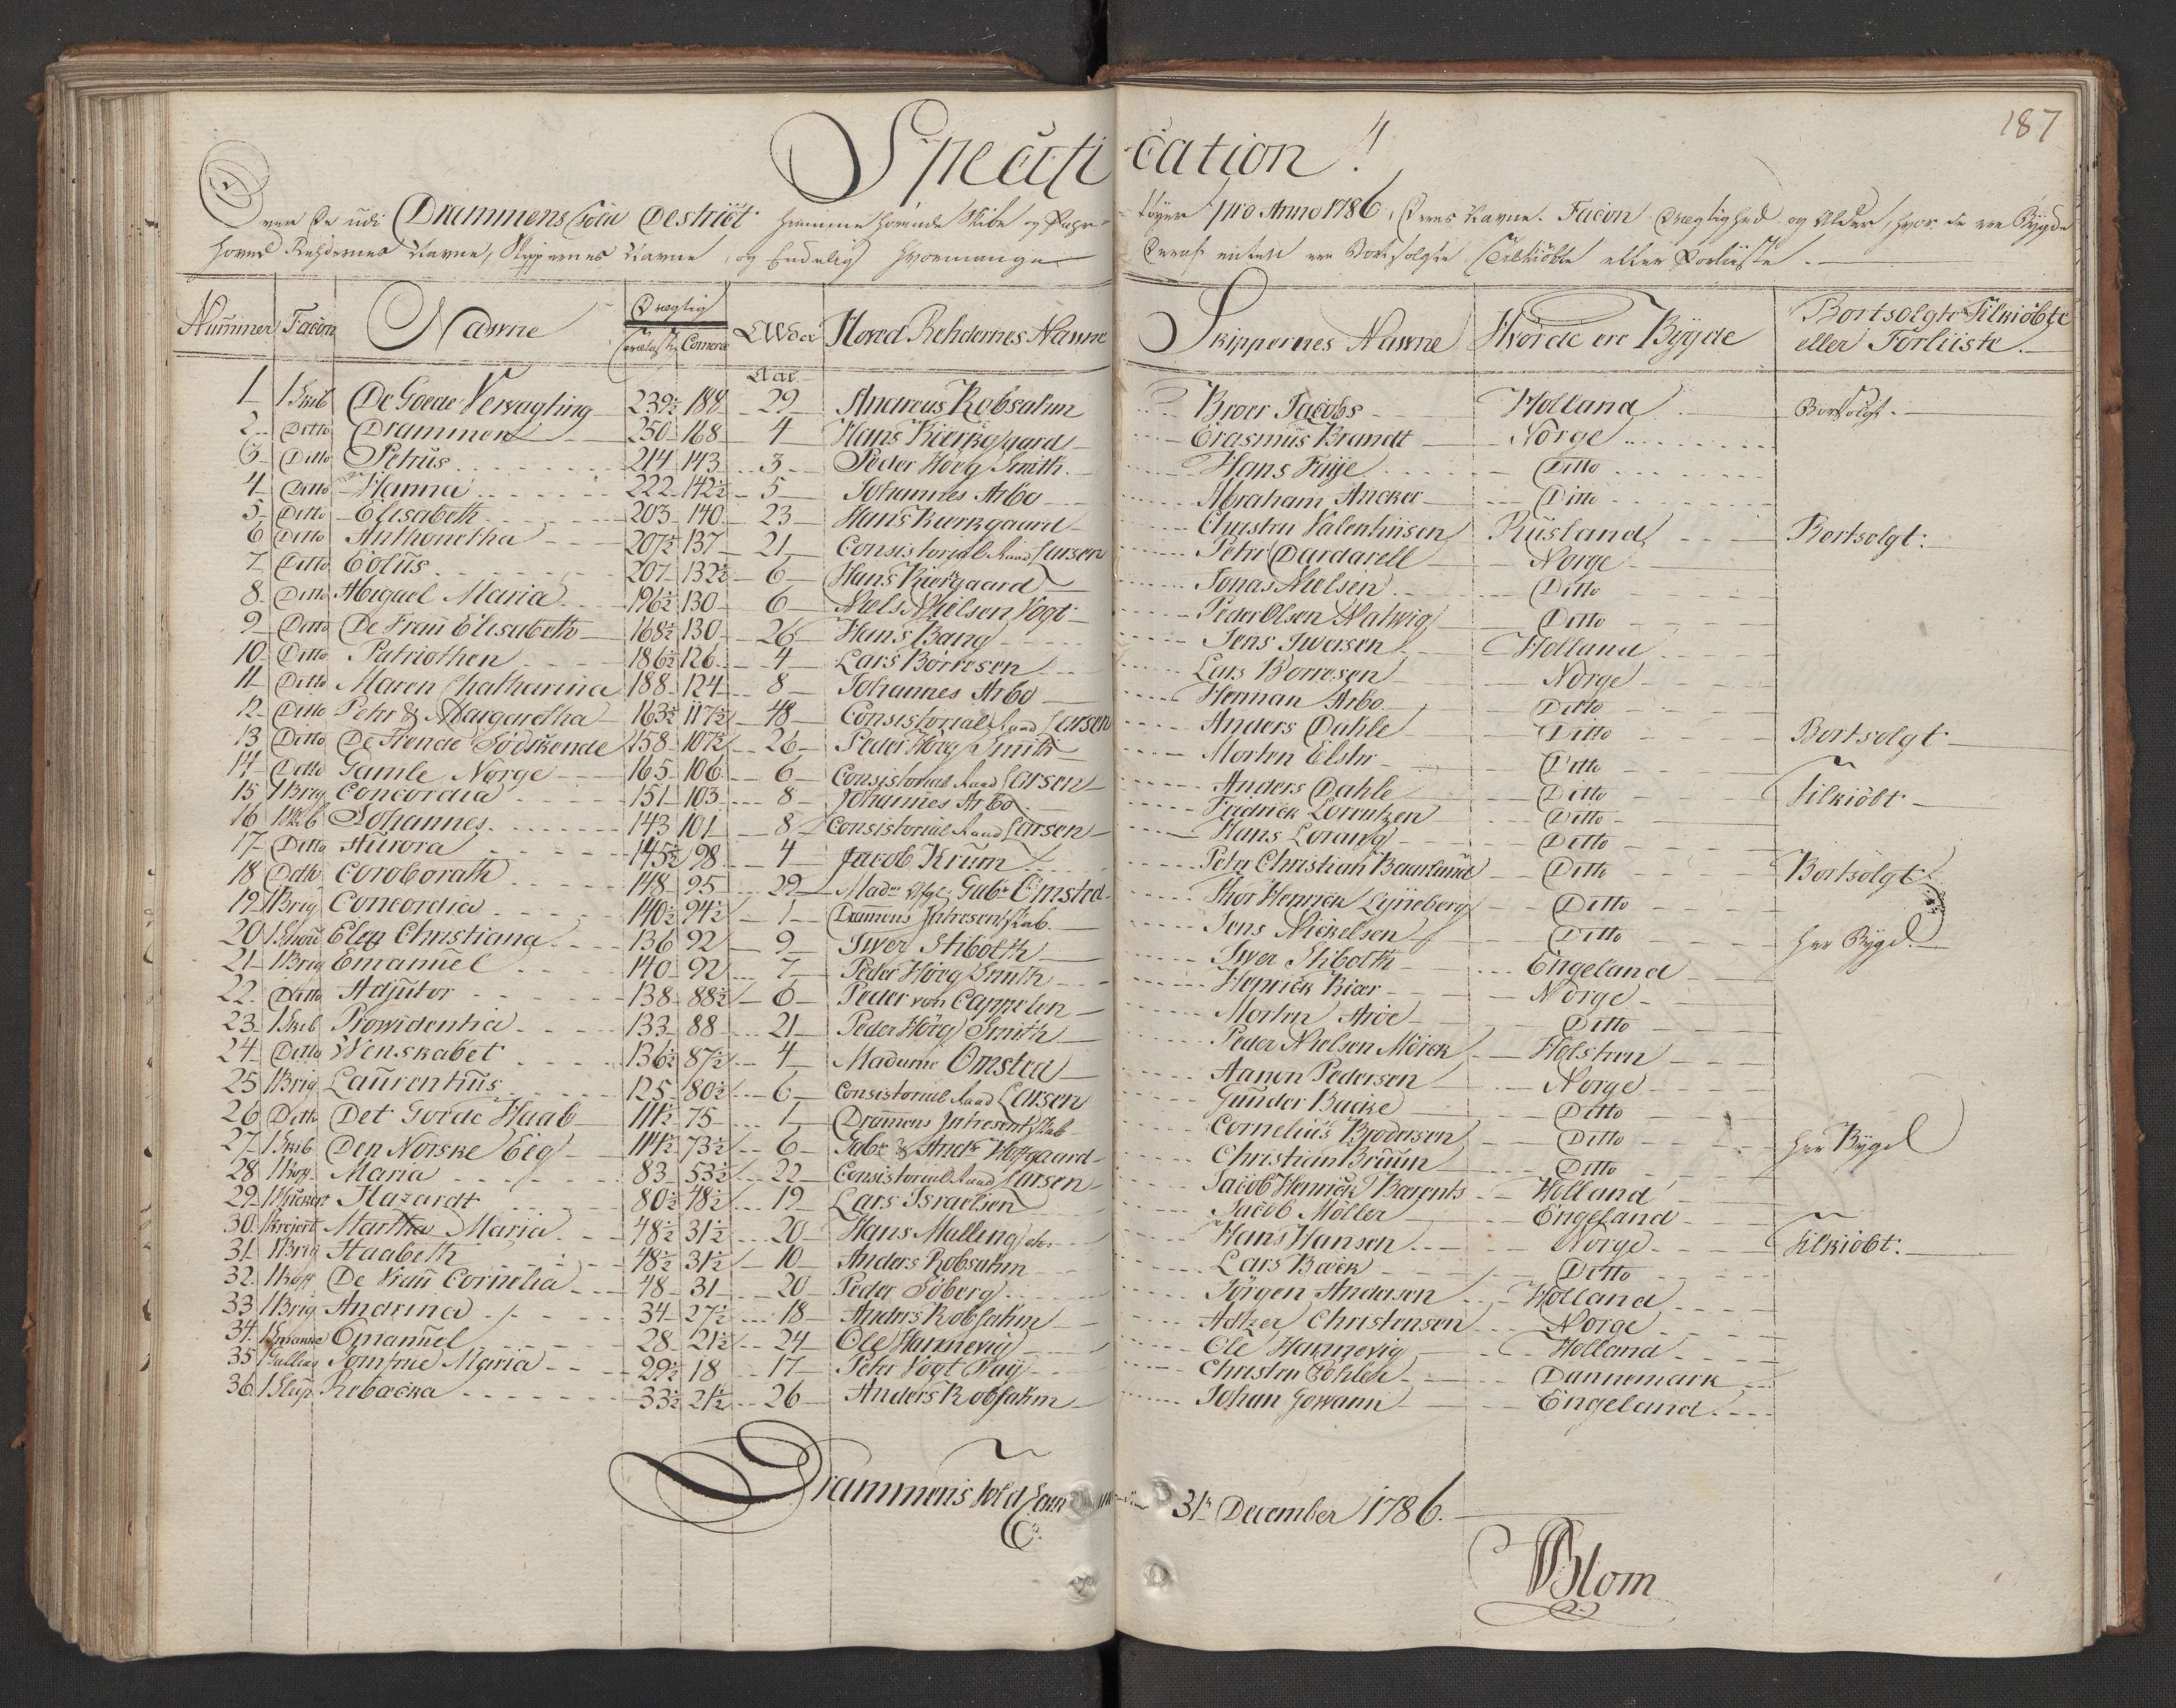 187
Specification
Over de udi Drammens Told District hiemme hörende Skibe og Fahrtöyer pro Anno 1786, Deres Navne. Facon Drægtighed og Alder, hvor de ere Bygde
hoved Rehdernes Navne, Skippernes Navne, og Endelig hvormange Deraf enten ere Bortsolgte Tilkiöbte eller Forliiste.
Nummer Facon Nawne Drægtig Comerce Alder Hoved Rehdernes Nawne Skippernes Nawne Hvor de ere Bygde Bortsolgte Tilkiöbte
eller Forliiste.
Aar
1 1 Skib De Goede Verwagting 239½ 188 29 Andreas Robsahm Broer Jacobs Holland Bortsolgt.
2 Ditto Drammen 250 168 4 Hans Kierkgaard Erasmus Brandt Norge
3 Ditto Petrus 214 143 3 Peder Höeg Smith Hans Fuye Ditto
4 Ditto Hanna 222 142½ 5 Johannes Arbo Abraham Ancker Ditto
5 Ditto Elisabeth 203 140 23 Hans Kierkgaard Christen Valentinsen Rusland Bortsolgt.
6 Ditto Anthonetha 207½ 137 21 Consistorial Raad Larsen Pehr Dardarell Norge
7 Ditto Eolus 207 132½ 6 Hans Kierkgaard Jonas Nielsen Ditto
8 Ditto Abigael Maria 196½ 130 6 Niels Nielsen Vogt Peder Olsen Walwig Ditto
9 Ditto De Frau Elisabeth 168½ 130 26 Hans Bang Jens Iwersen Holland
10 Ditto Patriothen 186½ 126 4 Lars Börresen Lars Borresen Norge
11 Ditto Maren Chatharina 188 124 8 Johannes Arbo Herman Arbo Ditto
12 Ditto Pehr & Margaretha 163½ 117½ 48 Consistorial Raad Larsen Anders Dahle Ditto Bortsolgt
13 Ditto De Trende Södskende 158 107½ 26 Peder Höeg Smith Morten Elster Ditto
14 Ditto Gamle Norge 165 106 6 Consistorial Raad Larsen Anders Dahle Ditto Tilkiöbt
15 1 Brig Concordia 151 103 8 Johannes Arbo Fredrick Lorentzen Ditto
16 1 Skib Johannes 143 101 8 Consistorial Raad Larsen Hans Lorang Ditto
17 Ditto Aurora 145½ 98 4 Jacob Krum Peter Christian Baurlund Ditto Bortsolgt
18 Ditto Coroborath 148 95 29 Mad. Gabr. Omsted Thor Henrick Lyneberg Ditto
19 1 Brig Concordia 140½ 94½ 1 Dramens Intresentskab. Jens Nickelsen Ditto her Bygd.
20 1 Snau Elen Christiana 136 92 9 Iwer Stibolth Iwer Stibolth Engeland
21 1 Brig Emanuel 140 92 7 Peder Höeg Smith Henrick Kiær Norge
22 Ditto Adjutor 138 88½ 6 Peder von Cappelen Morten Aröe Ditto
23 1 Skib Prowidentia 133 88 21 Peder Höeg Smith Peder Nielsen Mörck Holsteen
24 Ditto Wenskabet 136½ 87½ 4 Madame Omsted Aanon Pedersen Norge
25 1 Brig Laurentius 125 80½ 6 Consistorial Raad Larsen Gunder Backe Ditto
26 Ditto Det Gorde Haab 111½ 75 1 Dramens Intresentskab Cornelius Brodersen Ditto her Bygd
27 1 Skib Den Norske Eeg 114½ 73½ 6 Gabr. & Andr. Hofgaard Christian Bruun Ditto
28 1 Koff Maria 83 53½ 22 Consistorial Raad Larsen Jacob Henrick Barents Holland
29 1 Huckert Hazardt 80½ 48½ 19 Lars Israelsen Jacob Möller Engeland
30 1 Krejert Martha Maria 48½ 31½ 20 Hans Malling Hans Hansen Norge Tilkiöbt.
31 1 Brig Haabeth 48½ 31½ 10 Anders Robsahm Lars Bæck Ditto
32 1 Koff De Frau Cornelia 48 31 20 Peder Söberg Jörgen Andersen Holland
33 1 Brig Andrina 34 27½ 18 Anders Robsahm Adtzer Christensen Norge
34 Emanuel 28 21½ 24 Ole Hannevig Ole Hannevig Holland
35 1 Galleas Jomfrue Maria 29½ 18 17 Peter Vogt Christen Dannemark
36 1 Slup Rebacka 33½ 21½ 26 Anders Robsahm Johan Engeland
Drammens Told 31te December 1786.
Blom